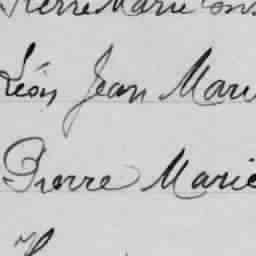 Pierre Marie
Léon Jean Marie
Pierre Marie